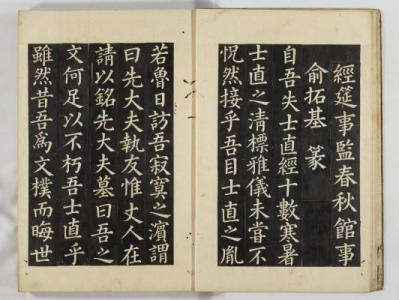 經筵事監春秋館事
俞拓基 篆
自吾失士直經十數寒暑
士直之清標雅儀未嘗不
怳然接乎吾目士直之胤
若魯日訪吾寂寞之濱謂
曰先大夫執友惟丈人在
請以銘先大夫墓曰吾之
文何足以不朽吾士直乎
雖然昔吾爲文樸而晦世